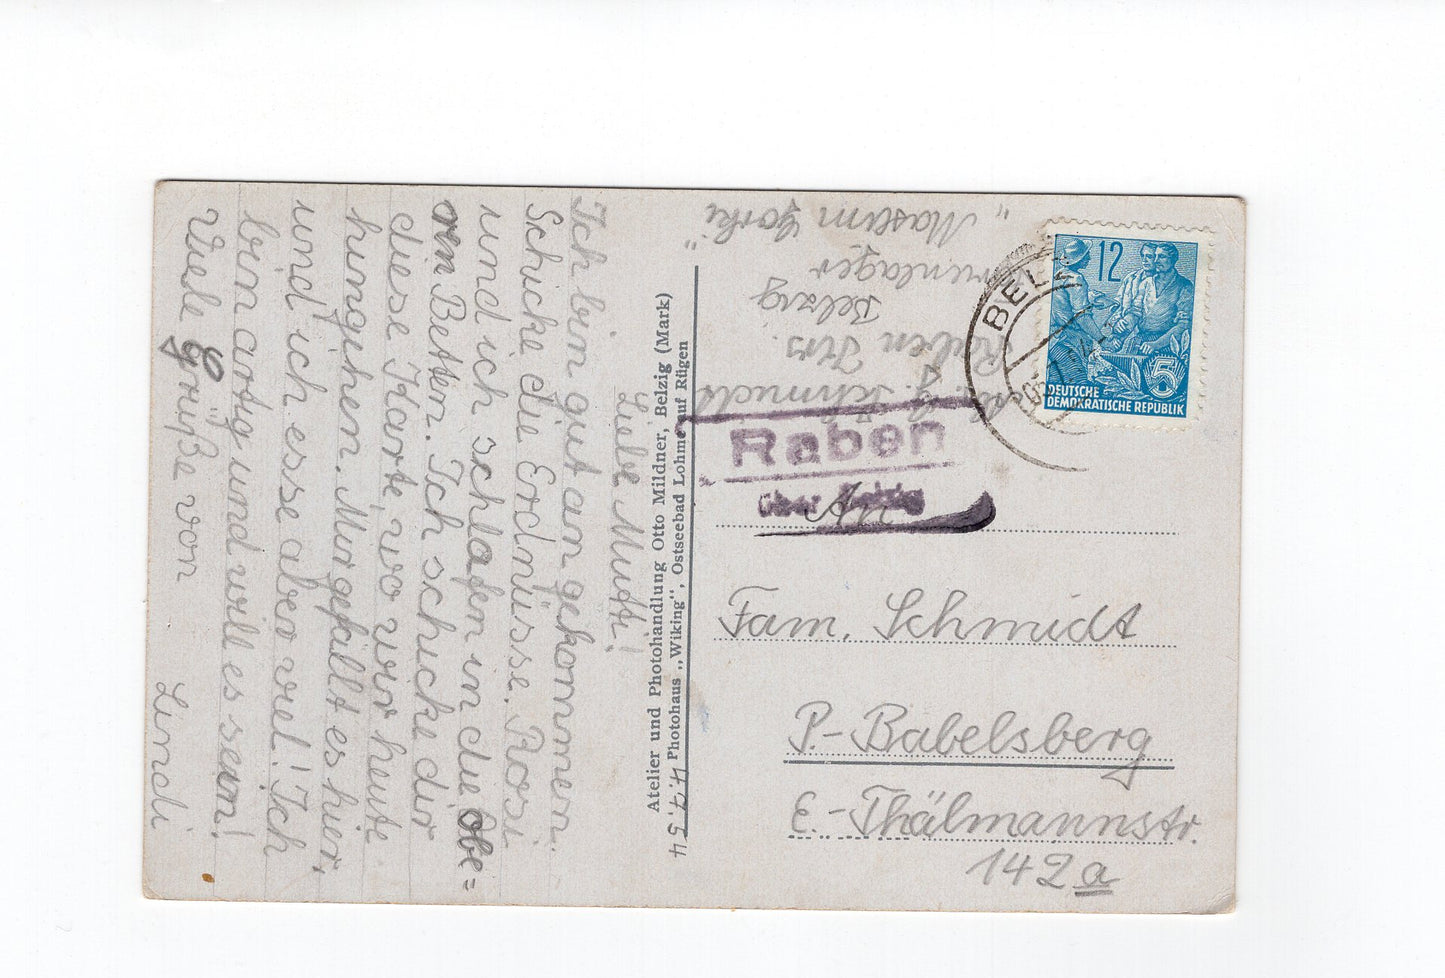 4.7.54
Liebe Mutti!
Ich bin gut angekommen.
Schicke die Erdnüsse. Rosi
und ich schlafen in die obe=
ren Betten. Ich schicke dir
diese Karte, wo wir heute
hingehen. Mir gefällt es hier,
und ich esse aber viel! Ich
bin artig und will es sein!
Viele Grüße von
Lundi
Atelier und Photohandlung Otto Mildner, Belzig (Mark)
Photohaus „Wiking", Ostseebad Lohme auf Rügen
Schmidt
Raben Krs.
Belzig
"Maxim Gorki"
BELZ
12
5
DEUTSCHE
DEMOKRATISCHE REPUBLIK
Raben
über Belzig
An
Fam. Schmidt
P.-Babelsberg
E.-Thälmannstr.
142a